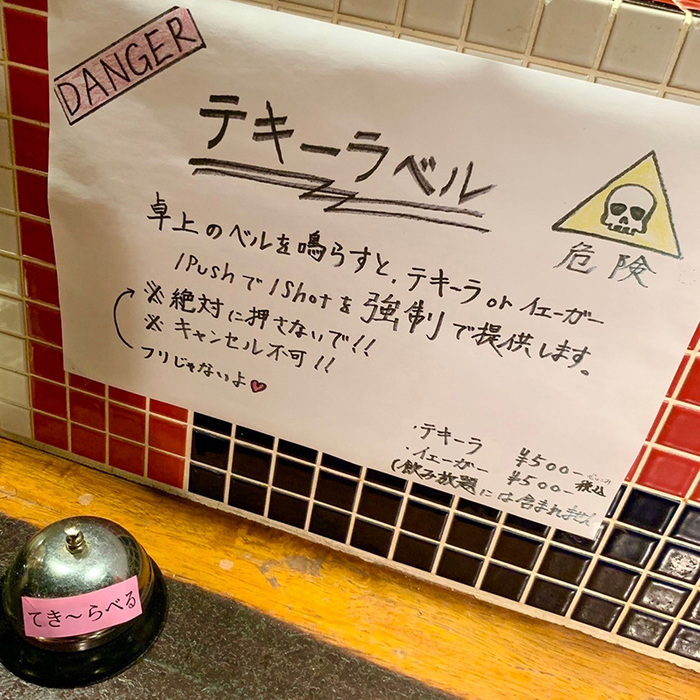 DANGER
テキーラベル
危険
卓上のベルを鳴らすと、テキーラ or イェーガー
1Pushで1Shotを強制で提供します。
※絶対に押さないで!!
※キャンセル不可!!
フリじゃないよ♥
・テキーラ ¥500-
・イェーガー ¥500-税込
(飲み放題には含まれません
てき〜らべる